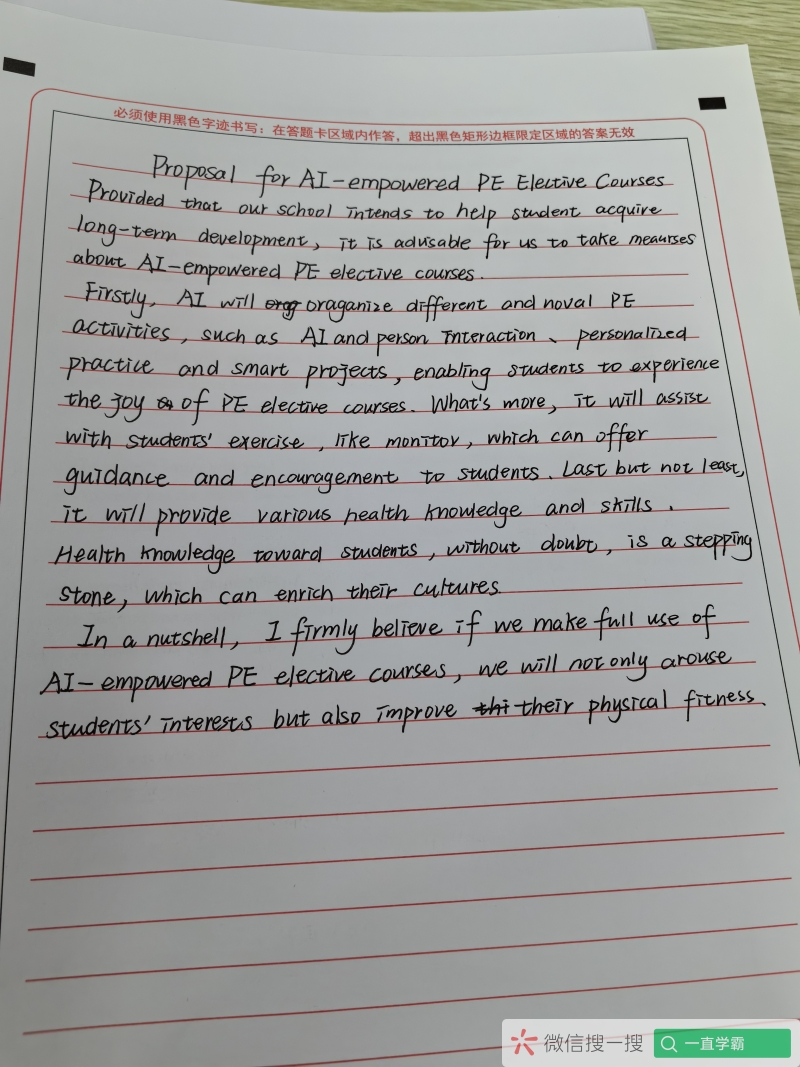 必须使用黑色字迹书写：在答题卡区域内作答，超出黑色矩形边框限定区域的答案无效
Proposal for AI-empowered PE Elective Courses
Provided that our school intends to help student acquire
long-term development, it is advisable for us to take meaurses
about AI-empowered PE elective courses.
Firstly, AI will oraganize different and noval PE
activities, such as AI and person interaction、personalized
practice and smart projects, enabling students to experience
the joy of PE elective courses. What's more, it will assist
with students' exercise, like monitor, which can offer
guidance and encouragement to students. Last but not least,
it will provide various health knowledge and skills.
Health knowledge toward students, without doubt, is a stepping
stone, which can enrich their cultures.
In a nutshell, I firmly believe if we make full use of
AI-empowered PE elective courses, we will not only arouse
students' interests but also improve their physical fitness.
微信搜一搜
一直学霸